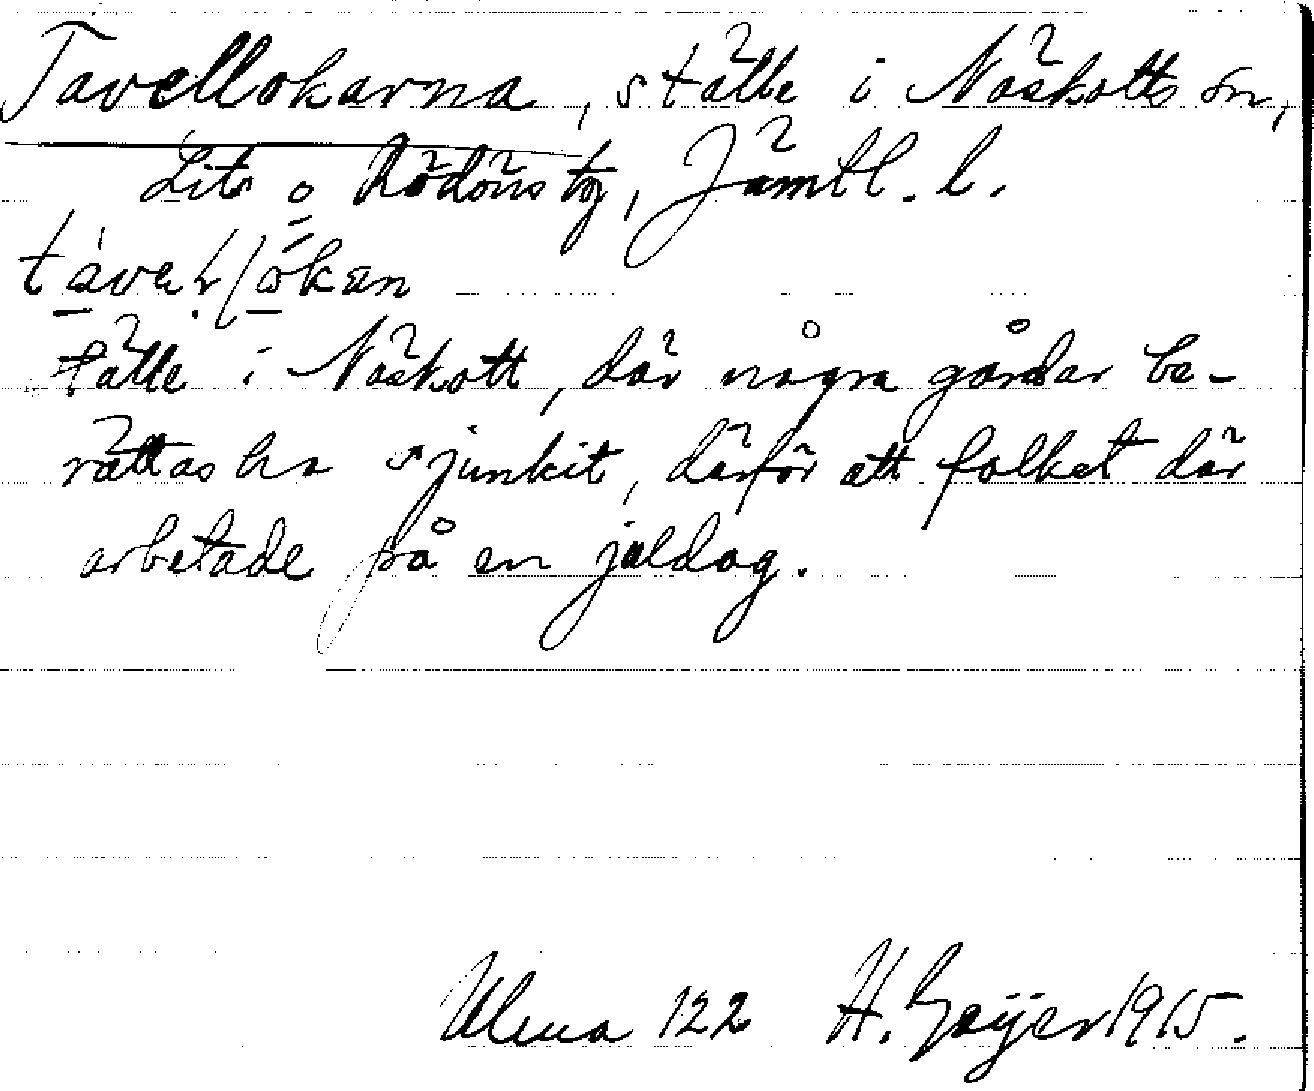 Tavellokarna, ställe i Näskotts sn,
Lits o Rödöns tg, Jämtl. l.
ställe i Näskott, där några gårdar be-
rättas ha sjunkit, därför att folket där
arbetade på en juldag.
Ulma 122 H. Geijer 1915.